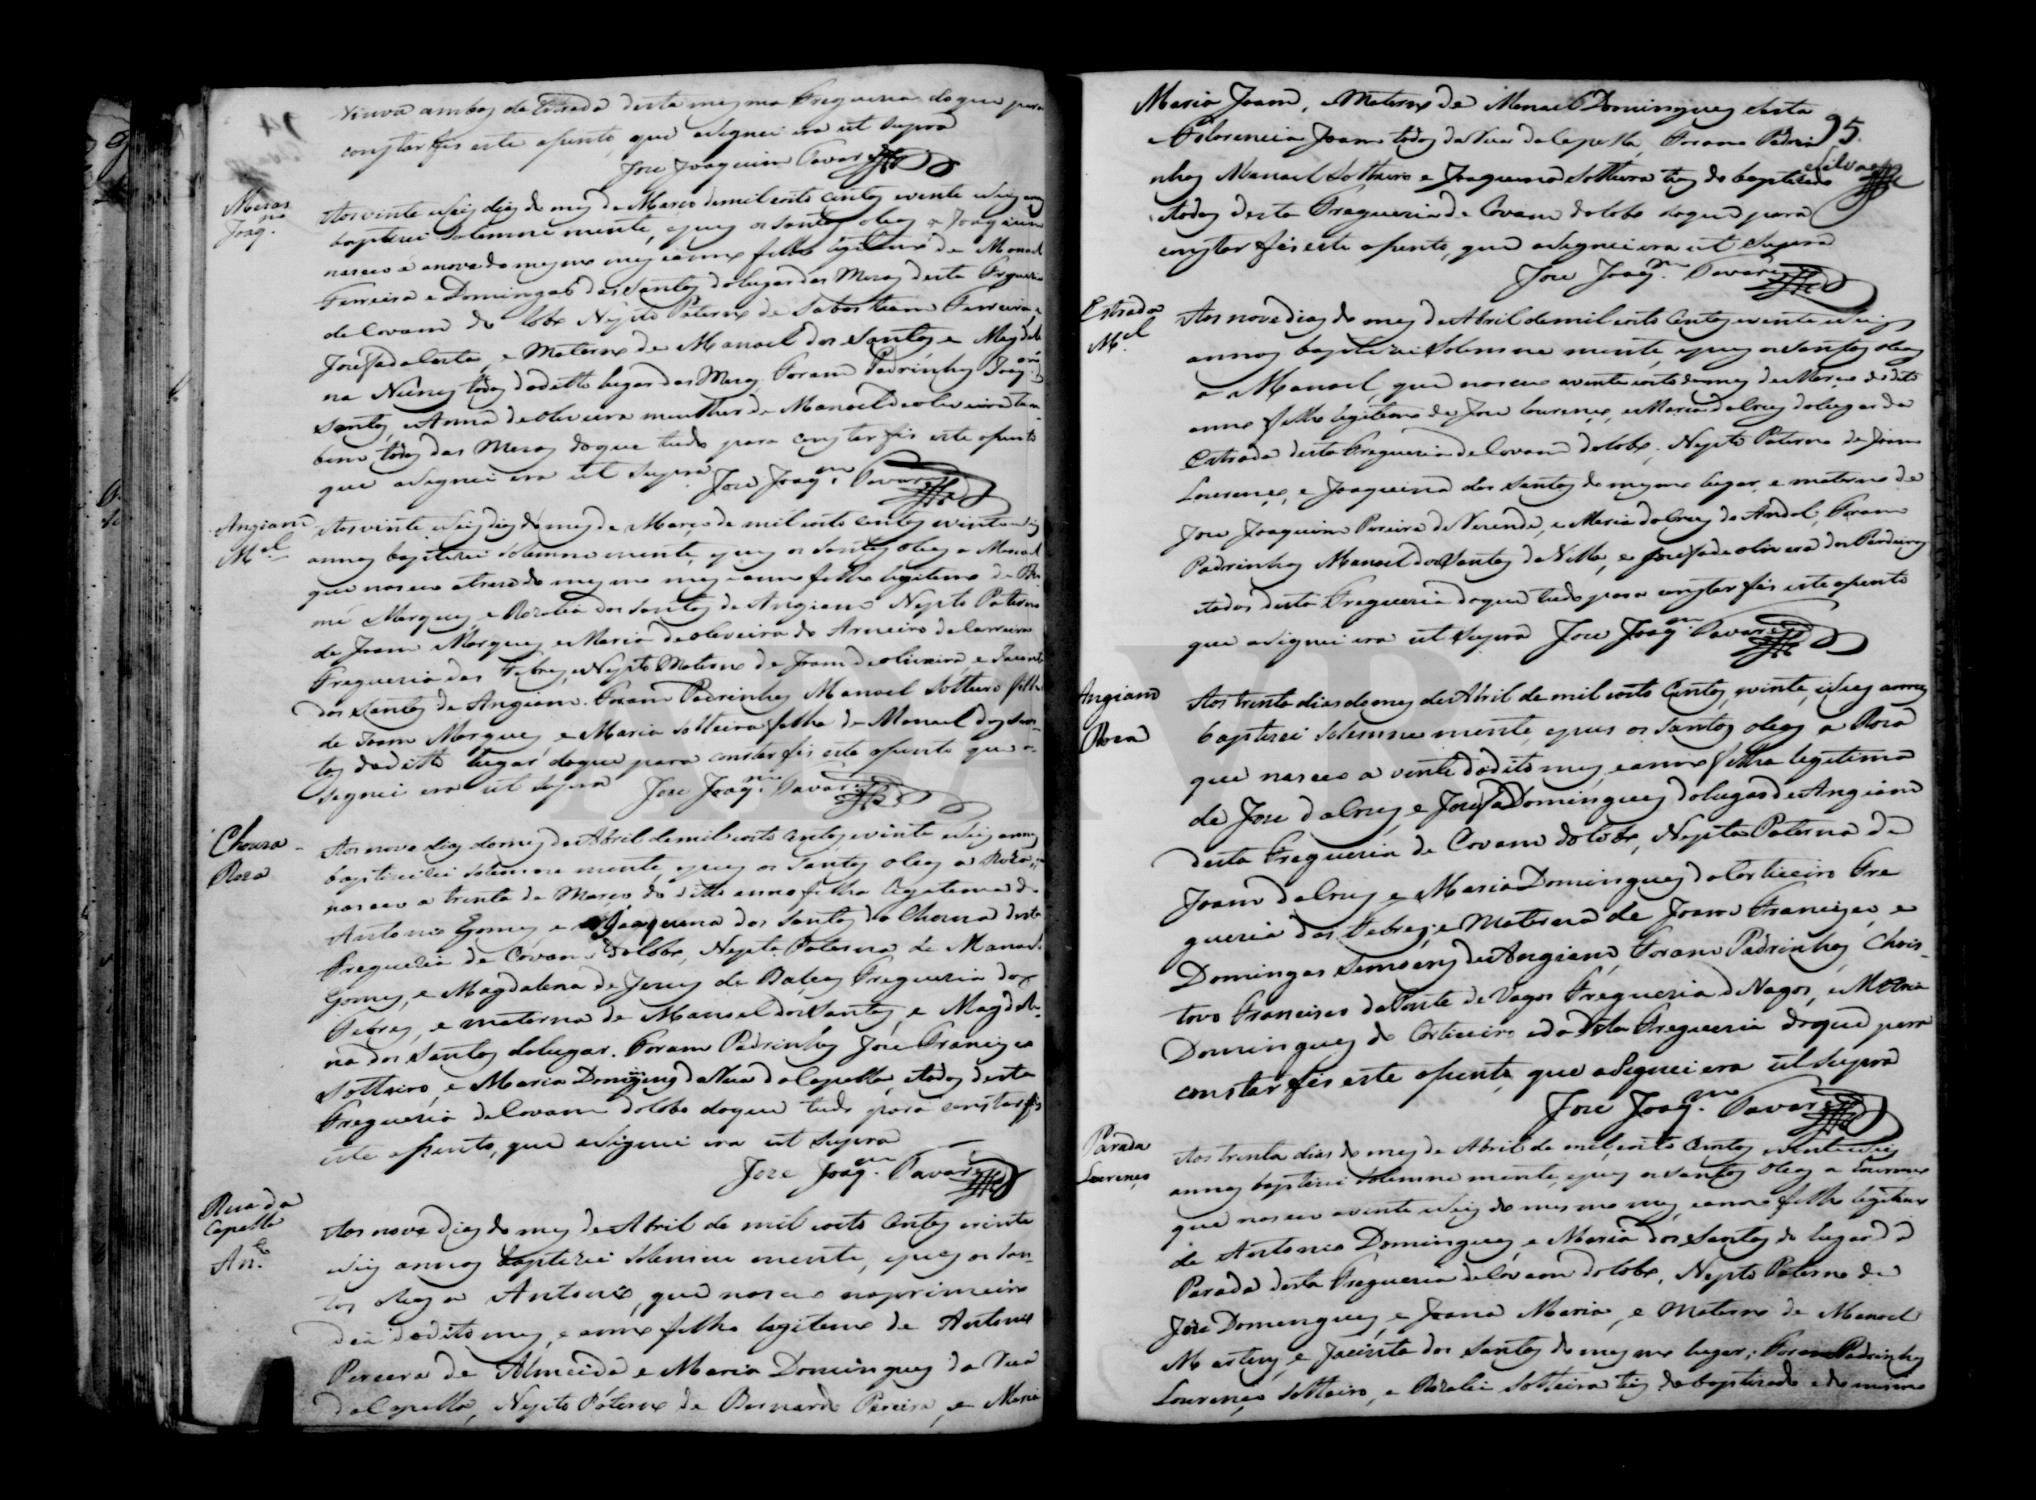 viuva ambos da Estrada desta mesma Freguezia do que para
constar fis este asento, que asignei era ut supra
Joze Joaquim Tavares
Mesas
Joaqm
Aos vinte e seis dias do mes de Março de mil oito centos e vinte e seis annos
baptizei solemne mente, e pus os santos oleos a Joaquim
nasceo a nove do mesmo mes e anno filho legitimo de Manoel
Ferreira e Domingas dos Santos do lugar das Mesas desta Freguezia
de Covam do Lobo Neypto Paterno de Sabastiam Ferreira e
Josefa da Costa, e Materno de Manoel dos Santos e Magdale
na Nunes todos do ditto lugar das Mesas Foram Padrinhos Joaqm
Santos, e Anna de oliveira mulher de Manoel de oliveira tam
bem todos das Mesas do que tudo para constar fis este asento
que asignei era ut supra Joze Joaqm Tavares
Angiam
Mel
Aos vinte e seis dias do mes de Março de mil oito centos e vinte e seis
annos baptizei solemne mente, e pus os santos oleos a Manoel
que nasceo a treze do mesmo mes e anno filho legitimo de
Marques, e Rozalia dos Santos de Angiam Neypto Paterno
de Joam Marques, e Maria de oliveira do Arneiro da Carreira
Freguezia das Febres, e Neypto Materno de Joam de oliveira, e Jacinta
dos Santos de Angiam. Foram Padrinhos Manoel Solteiro filho
de Joam Marques, e Maria solteira filha de Manoel dos San
tos do ditto lugar do que para constar fis este asento que a
signei era ut supra Joze Joaqm Tavares
Chouza
Roza
Aos nove dias do mes de Abril de mil oito centos e vinte e seis annos
baptizei solemne mente, e pus os Santos oleos a Roza
nasceo a trinta de Março do ditto anno filha legitima de
Antonio Gomes, e Joaquina dos Santos da Chouza desta
Freguezia de Covam do Lobo, Neypta Paterna de Manoel
Gomes, e Magdalena de Jezus de Freguezia das
Febres, e materna de Manoel dos Santos, e Magdale
na dos Santos do lugar. Foram Padrinhos Joze Francisco
Solteiro, e Maria Domingues da Rua da Capella, e todos desta
Freguezia de Covam do Lobo do que tudo para constar fis
este asento, que asignei era ut supra
Joze Joaqm Tavares
Rua da
Capella
Anto
Aos nove dias do mes de Abril de mil oito centos e vinte
e seis annos baptizei solemne mente, e pus os san
tos oleos a Antonio, que nasceo no primeiro
dia do dito mes, e anno filho legitimo de Antonio
Pereira de Almeida e Maria Domingues da Rua
da Capella, Neypto Paterno de Bernardo Pereira, e Maria
95.
Silva
Maria Joam, e Materno de Manoel Domingues e
Florencia Joam todos da Rua da Capella, Foram Padri
nhos Manoel Solteiro e Joaquina Solteira tios do baptizado
e todos desta Freguezia de Covam do Lobo do que para
constar fis este asento, que asignei era ut supra
Joze Joaqm Tavares
Estrada
Mel
Aos nove dias do mes de Abril de mil oito centos e vinte e seis
annos baptizei solemne mente, e pus os santos oleos
a Manoel, que nasceo a vinte e oito do mes de Março do dito
anno filho legitimo de Joze Lourenço, e Maria da Crus do lugar da
Estrada desta Freguezia de Covam do Lobo, Neypto Paterno de Joam
Lourenço, e Joaquina dos Santos do mesmo lugar, e materno de
Joze Joaquim Pereira de e Maria da Crus do Andal, Foram
Padrinhos Manoel dos Santos da Villa, e Josefa de oliveira dos
todos desta Freguezia do que tudo para constar fis este asento
que asignei era ut supra Joze Joaqm Tavares
Angiam
Roza
Aos trinta dias do mes de Abril de mil oito centos, e vinte, e seis annos
baptizei solemne mente, e pus os santos oleos a Roza
que nasceo a vinte do dito mes, e anno filha legitima
de Joze da Crus, e Josefa Domingues do lugar de Angiam
desta Freguezia de Covam do Lobo, Neypta Paterna de
Joam da Crus, e Maria Domingues do Corticeiro Fre
guezia das Febres, e Materna de Joam Francisco, e
Domingas Simoens de Angiam, Foram Padrinhos Chris
tovo Francisco da Ponte de Vagos Freguezia de Vagos, e Maria
Domingues do Corticeiro e da dita Freguezia do que para
constar fis este asento, que asignei era ut supra
Joze Joaqm Tavares
Parada
Lourenço
Aos trinta dias do mes de Abril de mil, oito centos e vinte e seis
annos baptizei solemne mente, e pus os santos oleos a Lourenço
que nasceo a vinte e seis do mesmo mes, e anno filho legitimo
de Antonio Domingues, e Maria dos Santos do lugar da
Parada desta Freguezia de Covam do Lobo, Neypto Paterno de
Joze Domingues, e Joana Maria, e Materno de Manoel
Martins, e Jacinta dos Santos do mesmo lugar; Foram Padrinhos
Lourenço Solteiro, e Rozalia Solteira tios do baptizado e do mesmo